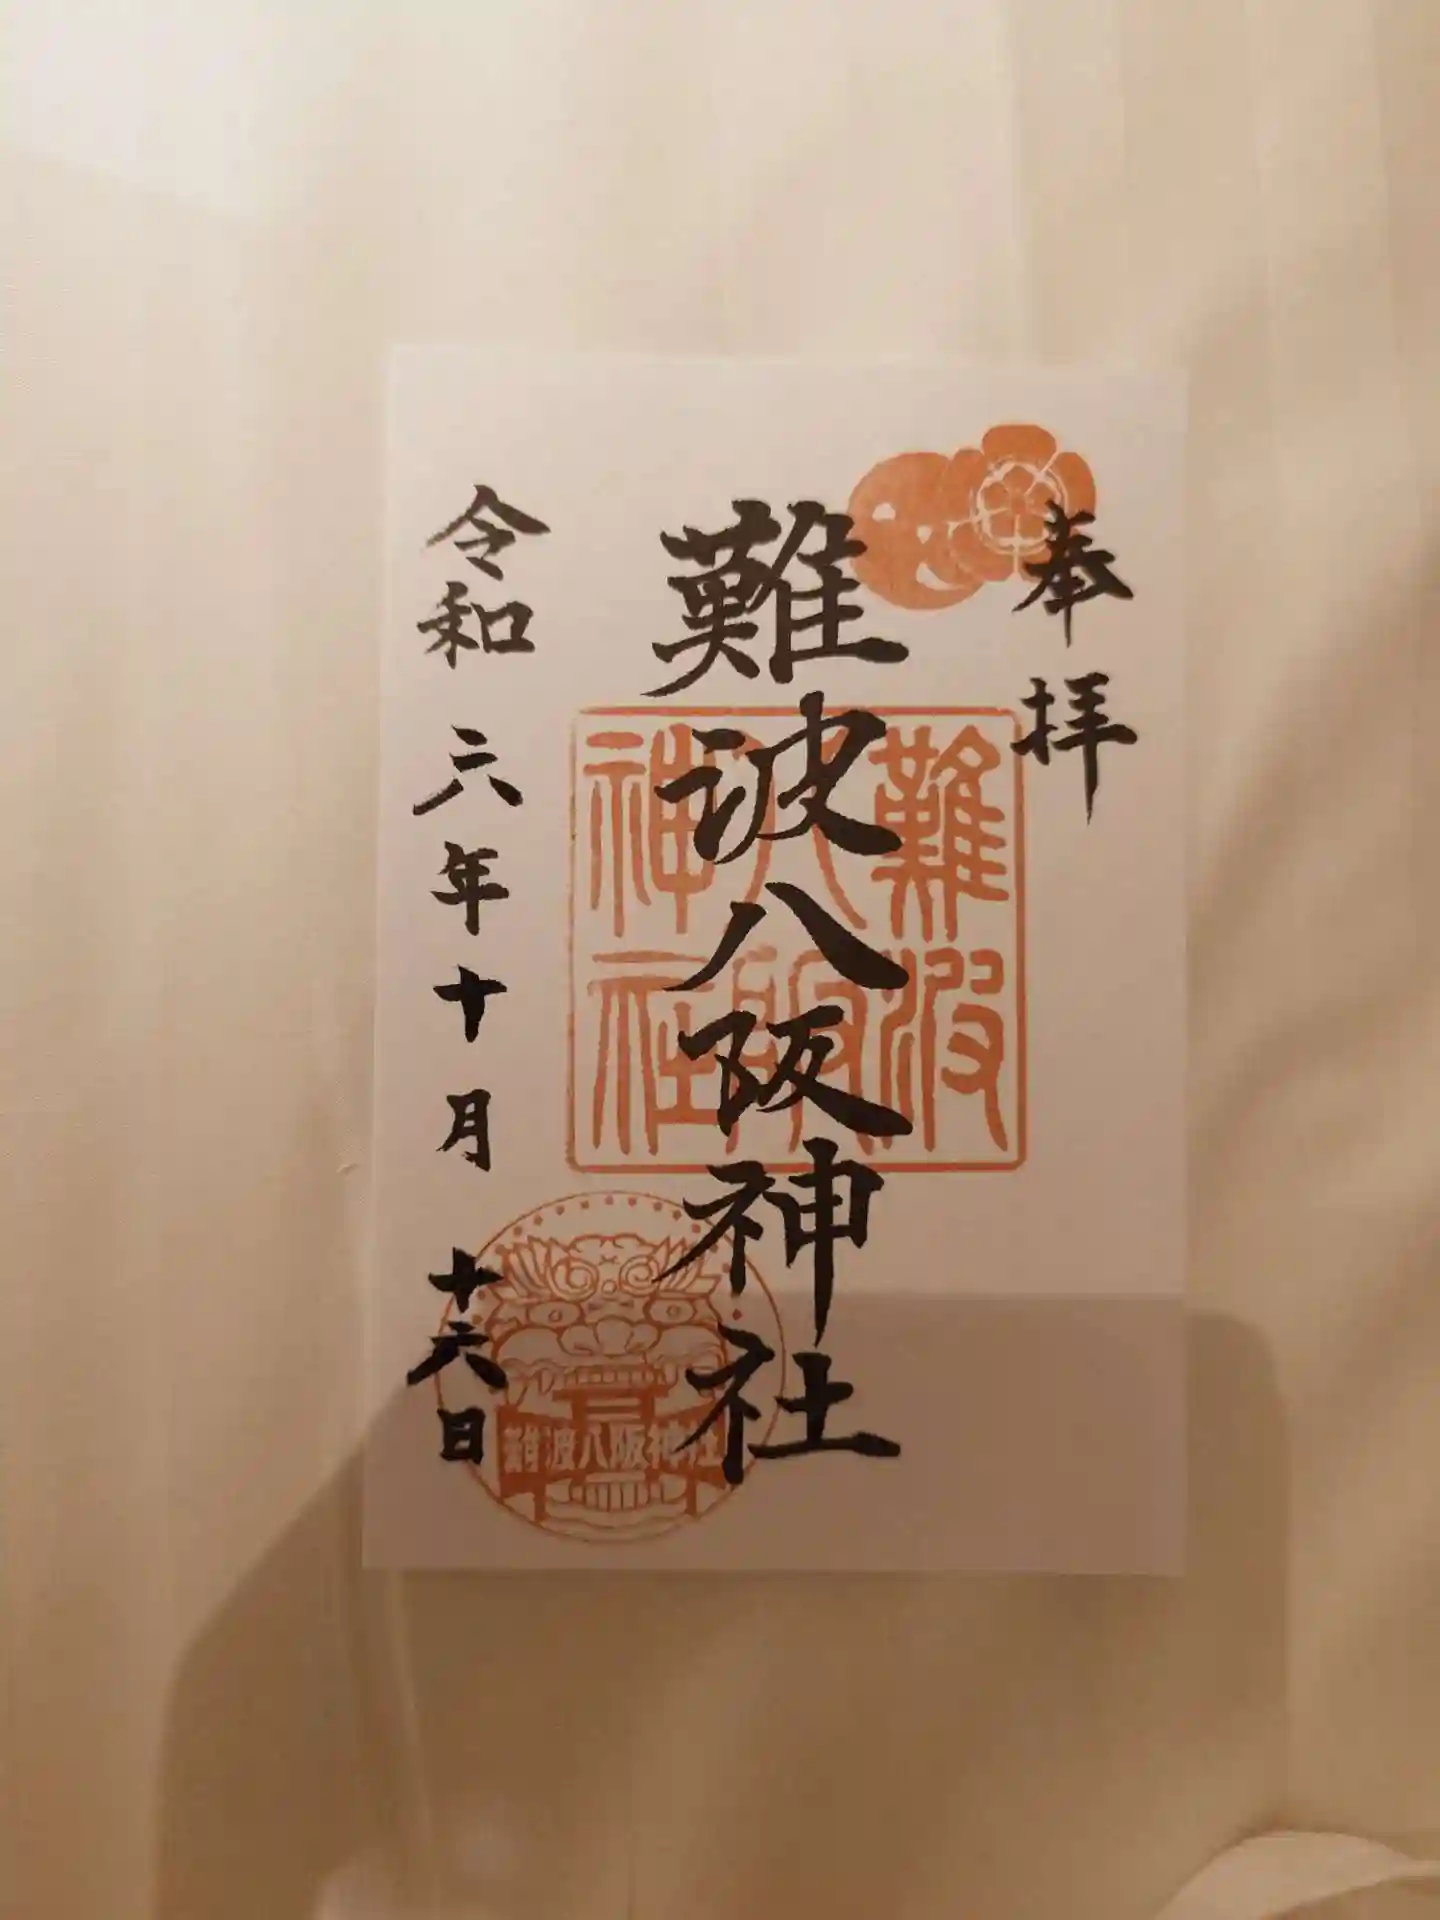 奉拝
難波八阪神社
難波
八阪
神社
令和六年十月十六日
難波八阪神社